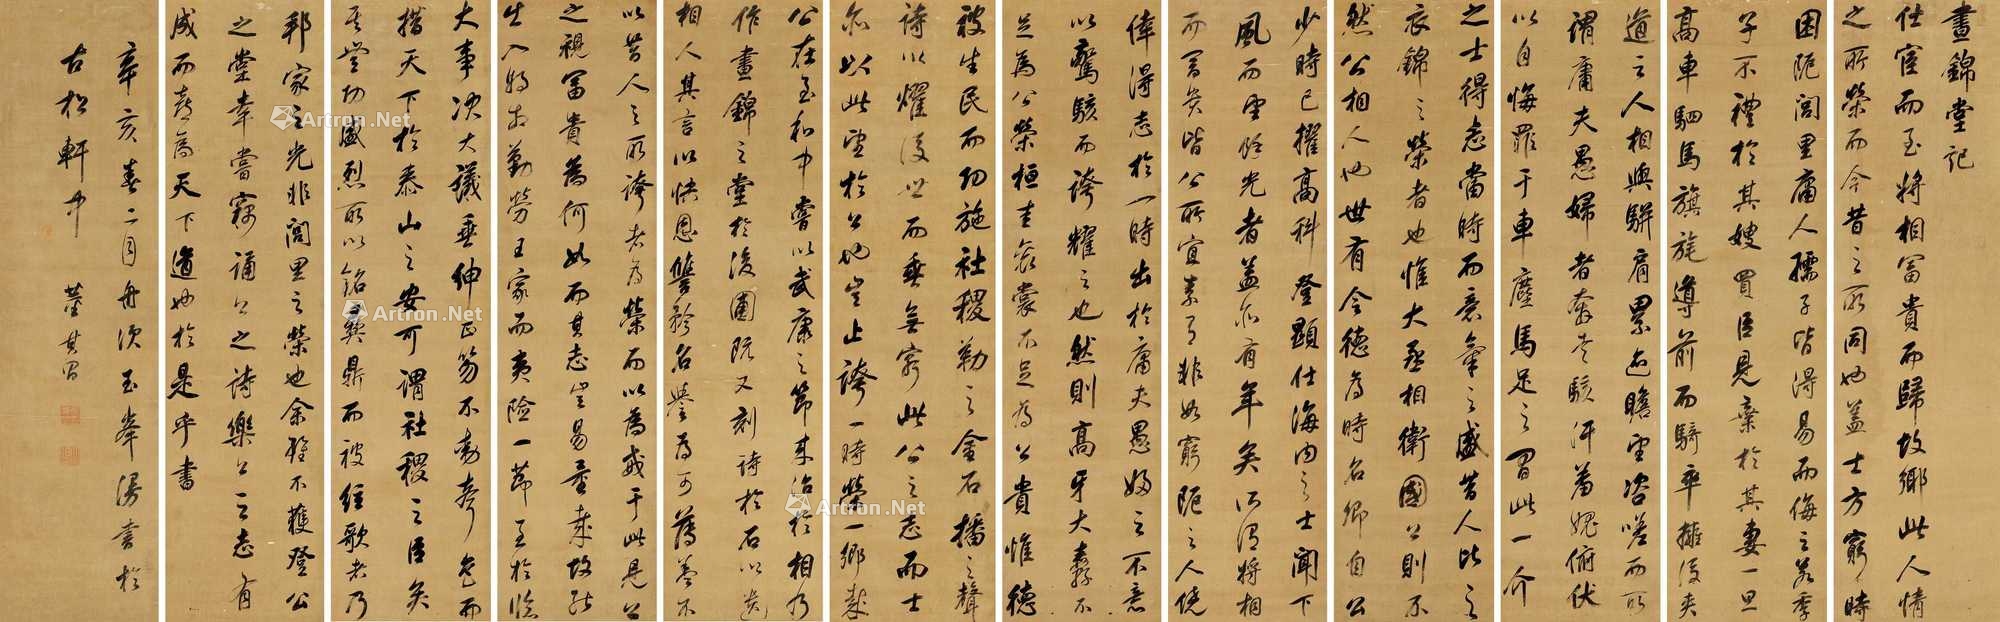 晝錦堂記
仕宦而至將相富貴而歸故鄉此人情
之所榮而今昔之所同也蓋士方窮時
困阨閭里庸人孺子皆得易而侮之若季
子不禮於其嫂買臣見棄於其妻一旦
高車駟馬旗旄導前而騎卒擁後夾
道之人相與駢肩累迹瞻望咨嗟而所
謂庸夫愚婦者奔走駭汗羞愧俯伏
以自悔罪于車塵馬足之間此一介
之士得志當時而意氣之盛昔人比之
衣錦之榮者也惟大丞相衛國公則不
然公相人也世有令德為時名卿自公
少時已擢高科登顯仕海内之士聞下
風而望餘光者蓋亦有年矣所謂將相
而富貴皆公所宜素有非如窮阨之人僥
倖得志於一時出於庸夫愚婦之不意
以驚駭而誇耀之也然則高牙大纛不
足為公榮桓圭袞裳不足為公貴惟德
被生民而功施社稷勒之金石播之聲
詩以耀後世而垂無窮此公之志而士
亦以此望於公也豈止誇一時榮一鄉哉
公在至和中嘗以武康之節來治於相乃
作晝錦之堂於後圃既又刻詩於石以遺
相人其言以快恩讎矜名譽為可薄蓋不
以昔人之所誇者為榮而以為戒于此見公
之視富貴為何如而其志豈易量哉故能
出入將相勤勞王家而夷險一節至於臨
大事決大議垂紳正笏不動聲色而
措天下於泰山之安可謂社稷之臣矣
其豐功盛烈所以銘彝鼎而被絃歌者乃
邦家之光非閭里之榮也余雖不獲登公
之堂幸嘗竊誦公之詩樂公之志有
成而喜為天下道也於是乎書
辛亥春二月舟次玉峯漫書於
古松軒中 董其昌
Artron.Net
Artron.Net
Artron.Net
Artron.Net
Artron.Net
Artron.Net